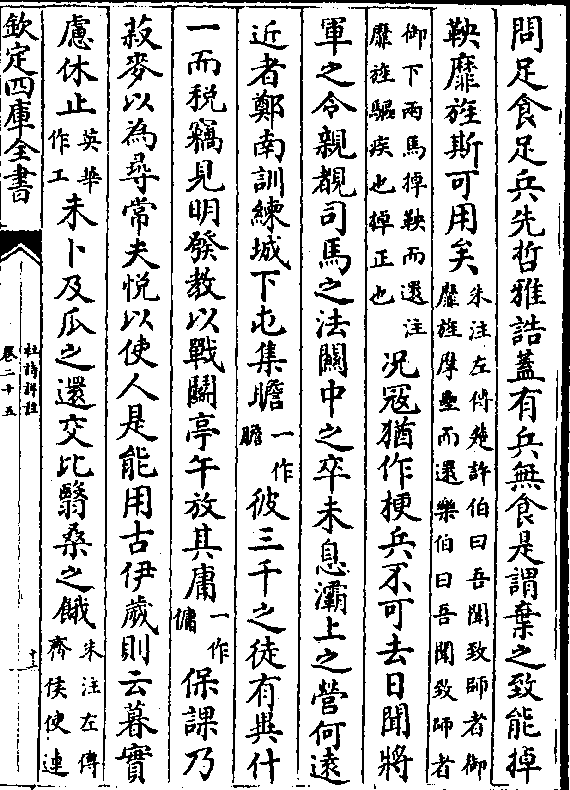 問足食足兵先哲雅誥蓋有兵無食是謂棄之致能掉
鞅靡旌斯可用矣
朱注左傳楚許伯曰吾聞致師者御
靡旌摩壘而還樂伯曰吾聞致師者
御下兩馬掉鞅而還注
靡旌驅疾也掉正也
况冦猶作梗兵不可去日聞將
軍之令親覩司馬之法關中之卒未息灞上之營何遠
近者鄭南訓練城下屯集瞻
一作
膽
彼三千之徒有異什
一而税竊見明發教以戰鬭亭午放其庸
一作
傭
保課乃
菽麥以為尋常夫悦以使人是能用古伊歲則云暮實
慮休止
英華
作工
未卜及瓜之還交比翳桑之餓
朱注左傳
齊侯使連
欽定四庫全書
杜詩詳註
卷二十五
十三